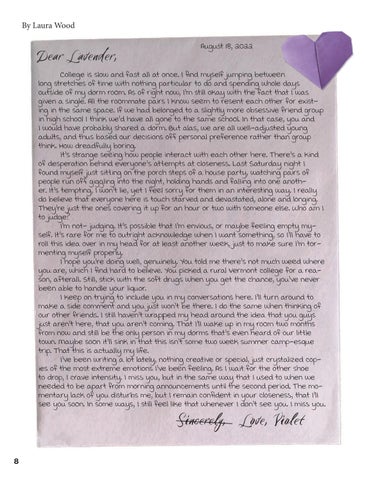 By Laura Wood
August 18, 2022
Dear Lavender,
College is slow and fast all at once. I find myself jumping between
long stretches of time with nothing particular to do and spending whole days
outside of my dorm room. As of right now, I'm still okay with the fact that I was
given a single. All the roommate pairs I know seem to resent each other for exist-
ing in the same space. If we had belonged to a slightly more obsessive friend group
in high school I think we'd have all gone to the same school. In that case, you and
I would have probably shared a dorm. But alas, we are all well-adjusted young
adults, and thus based our decisions off personal preference rather than group
think. How dreadfully boring.
It's strange seeing how people interact with each other here. There's a kind
of desperation behind everyone's attempts at closeness. Last Saturday night I
found myself just sitting on the porch steps of a house party, watching pairs of
people run off giggling into the night, holding hands and falling into one anoth-
er. It's tempting, I won't lie, yet I feel sorry for them in an interesting way. I really
do believe that everyone here is touch starved and devastated, alone and longing.
They're just the ones covering it up for an hour or two with someone else. Who am I
to judge?
I'm not- judging. It's possible that I'm envious, or maybe feeling empty my-
self. It's rare for me to outright acknowledge when I want something, so I'll have to
roll this idea over in my head for at least another week, just to make sure I'm tor-
menting myself properly.
I hope you're doing well, genuinely. You told me there's not much weed where
you are, which I find hard to believe. You picked a rural Vermont college for a rea-
son, afterall. Still, stick with the soft drugs when you get the chance, you've never
been able to handle your liquor.
I keep on trying to include you in my conversations here. I'll turn around to
make a side comment and you just won't be there. I do the same when thinking of
our other friends. I still haven't wrapped my head around the idea that you guys
just aren't here, that you aren't coming. That I'll wake up in my room two months
from now and still be the only person in my dorms that's even heard of our little
town. Maybe soon it'll sink in that this isn't some two week summer camp-esque
trip. That this is actually my life.
I've been writing a lot lately, nothing creative or special, just crystalized cop-
ies of the most extreme emotions I've been feeling. As I wait for the other shoe
to drop, I crave intensity. I miss you, but in the same way that I used to when we
needed to be apart from morning announcements until the second period. The mo-
mentary lack of you disturbs me, but I remain confident in your closeness, that I'll
see you soon. In some ways, I still feel like that whenever I don't see you. I miss you.
Sincerely, Love, Violet
8